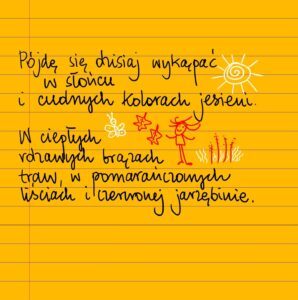 Pójdę się dzisiaj wykąpać
w słońcu
i cudnych kolorach jesieni.
W ciepłych
rdzawych brązach
traw, w pomarańczowych
liściach i czerwonej jarzębinie.